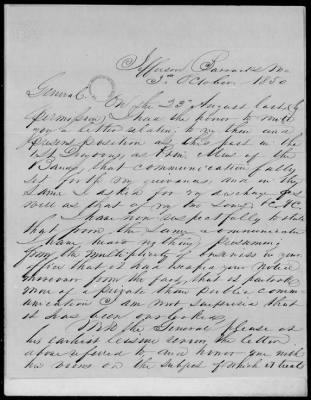 Jefferson Barracks Mo
3d October 1850
General.
On the 23d August last (by
permission) I had the honor to write
you a letter relating to my then and
present position at this post in the
1st Dragoons, as Chief Muc of the
Band, that communication fully
set forth my grievances and in the
same I asked for my discharge as
well as that of my two sons, &c &c.
I have now respectfully to state
that from the same communication
I have heard nothing, presuming
from the multiplicity of business in your
office that it has escaped your notice
moreover from the fact, that it partook
more of a private than public comm-
unication I am not surprised that
it has been overlooked.
Will the General please at
his earliest leisure review the letter
above referred to, and honor me with
his views on the subject of which it treats